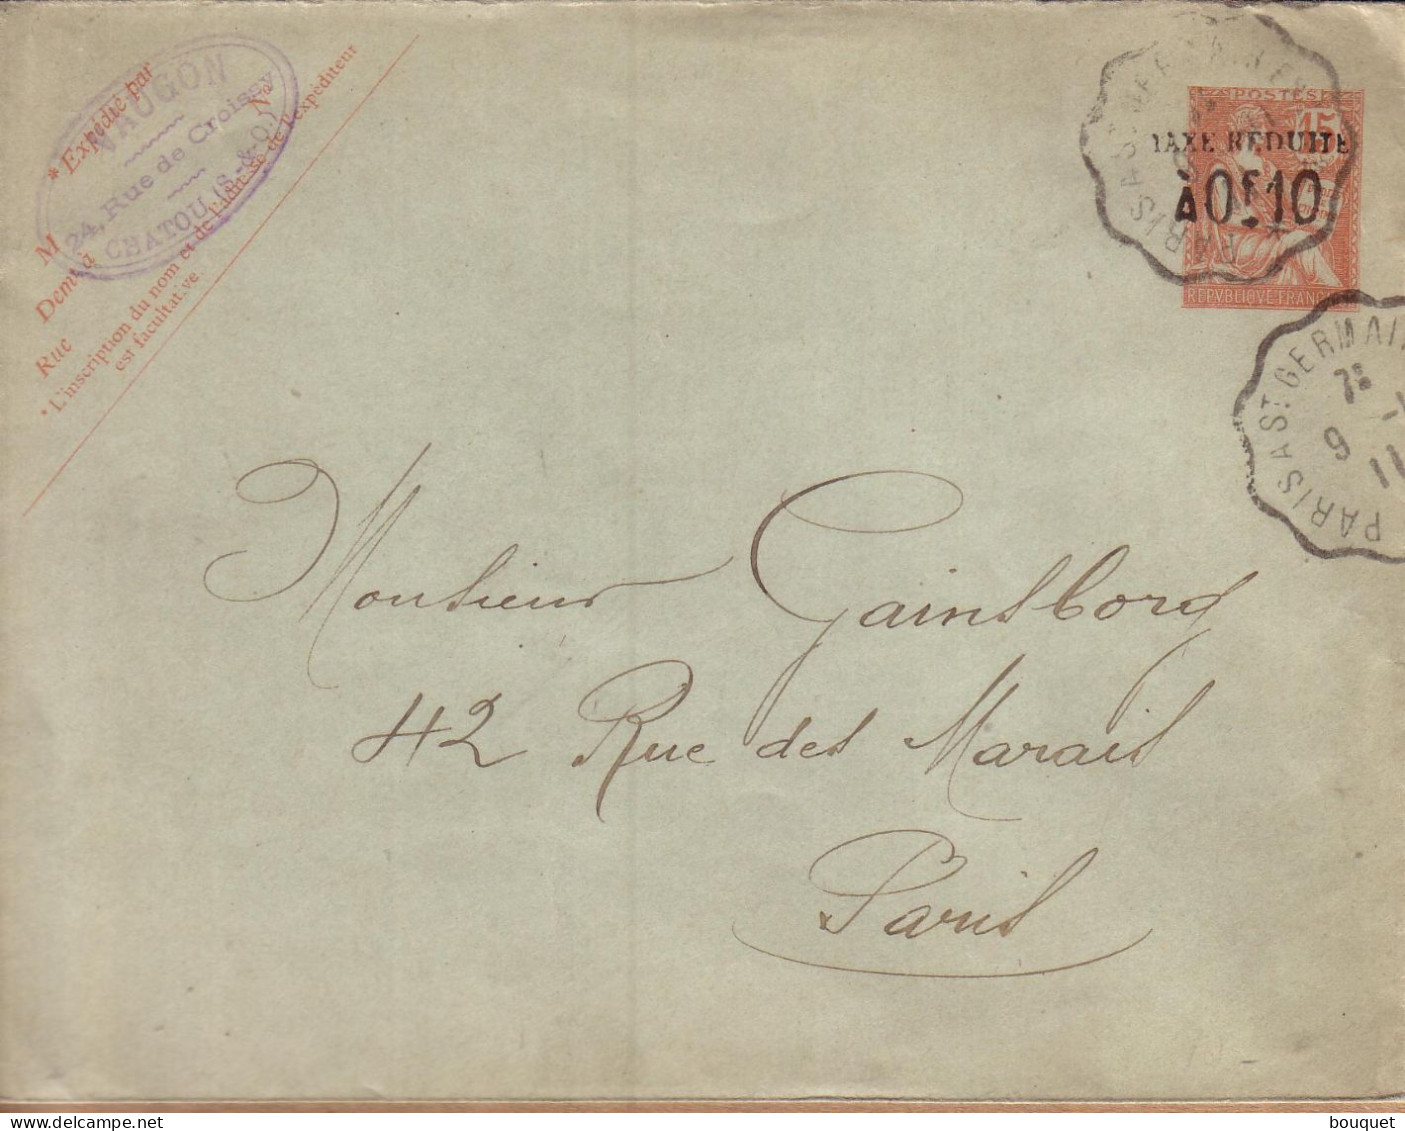 * Expédié par
M
Demt à
Rue No
* L'inscription du nom et de l'adresse de l'expéditeur
est facultative.
VAUGON
24, Rue de Croissy
CHATOU (S.-&-O.)
POSTES
15
TAXE REDUITE
À 0f.10
REPVBLIQVE FRANC
PARIS A ST GERMAI
7E
9
11
Monsieur Gainsborg
42 Rue des Marais
Paris
bouquet